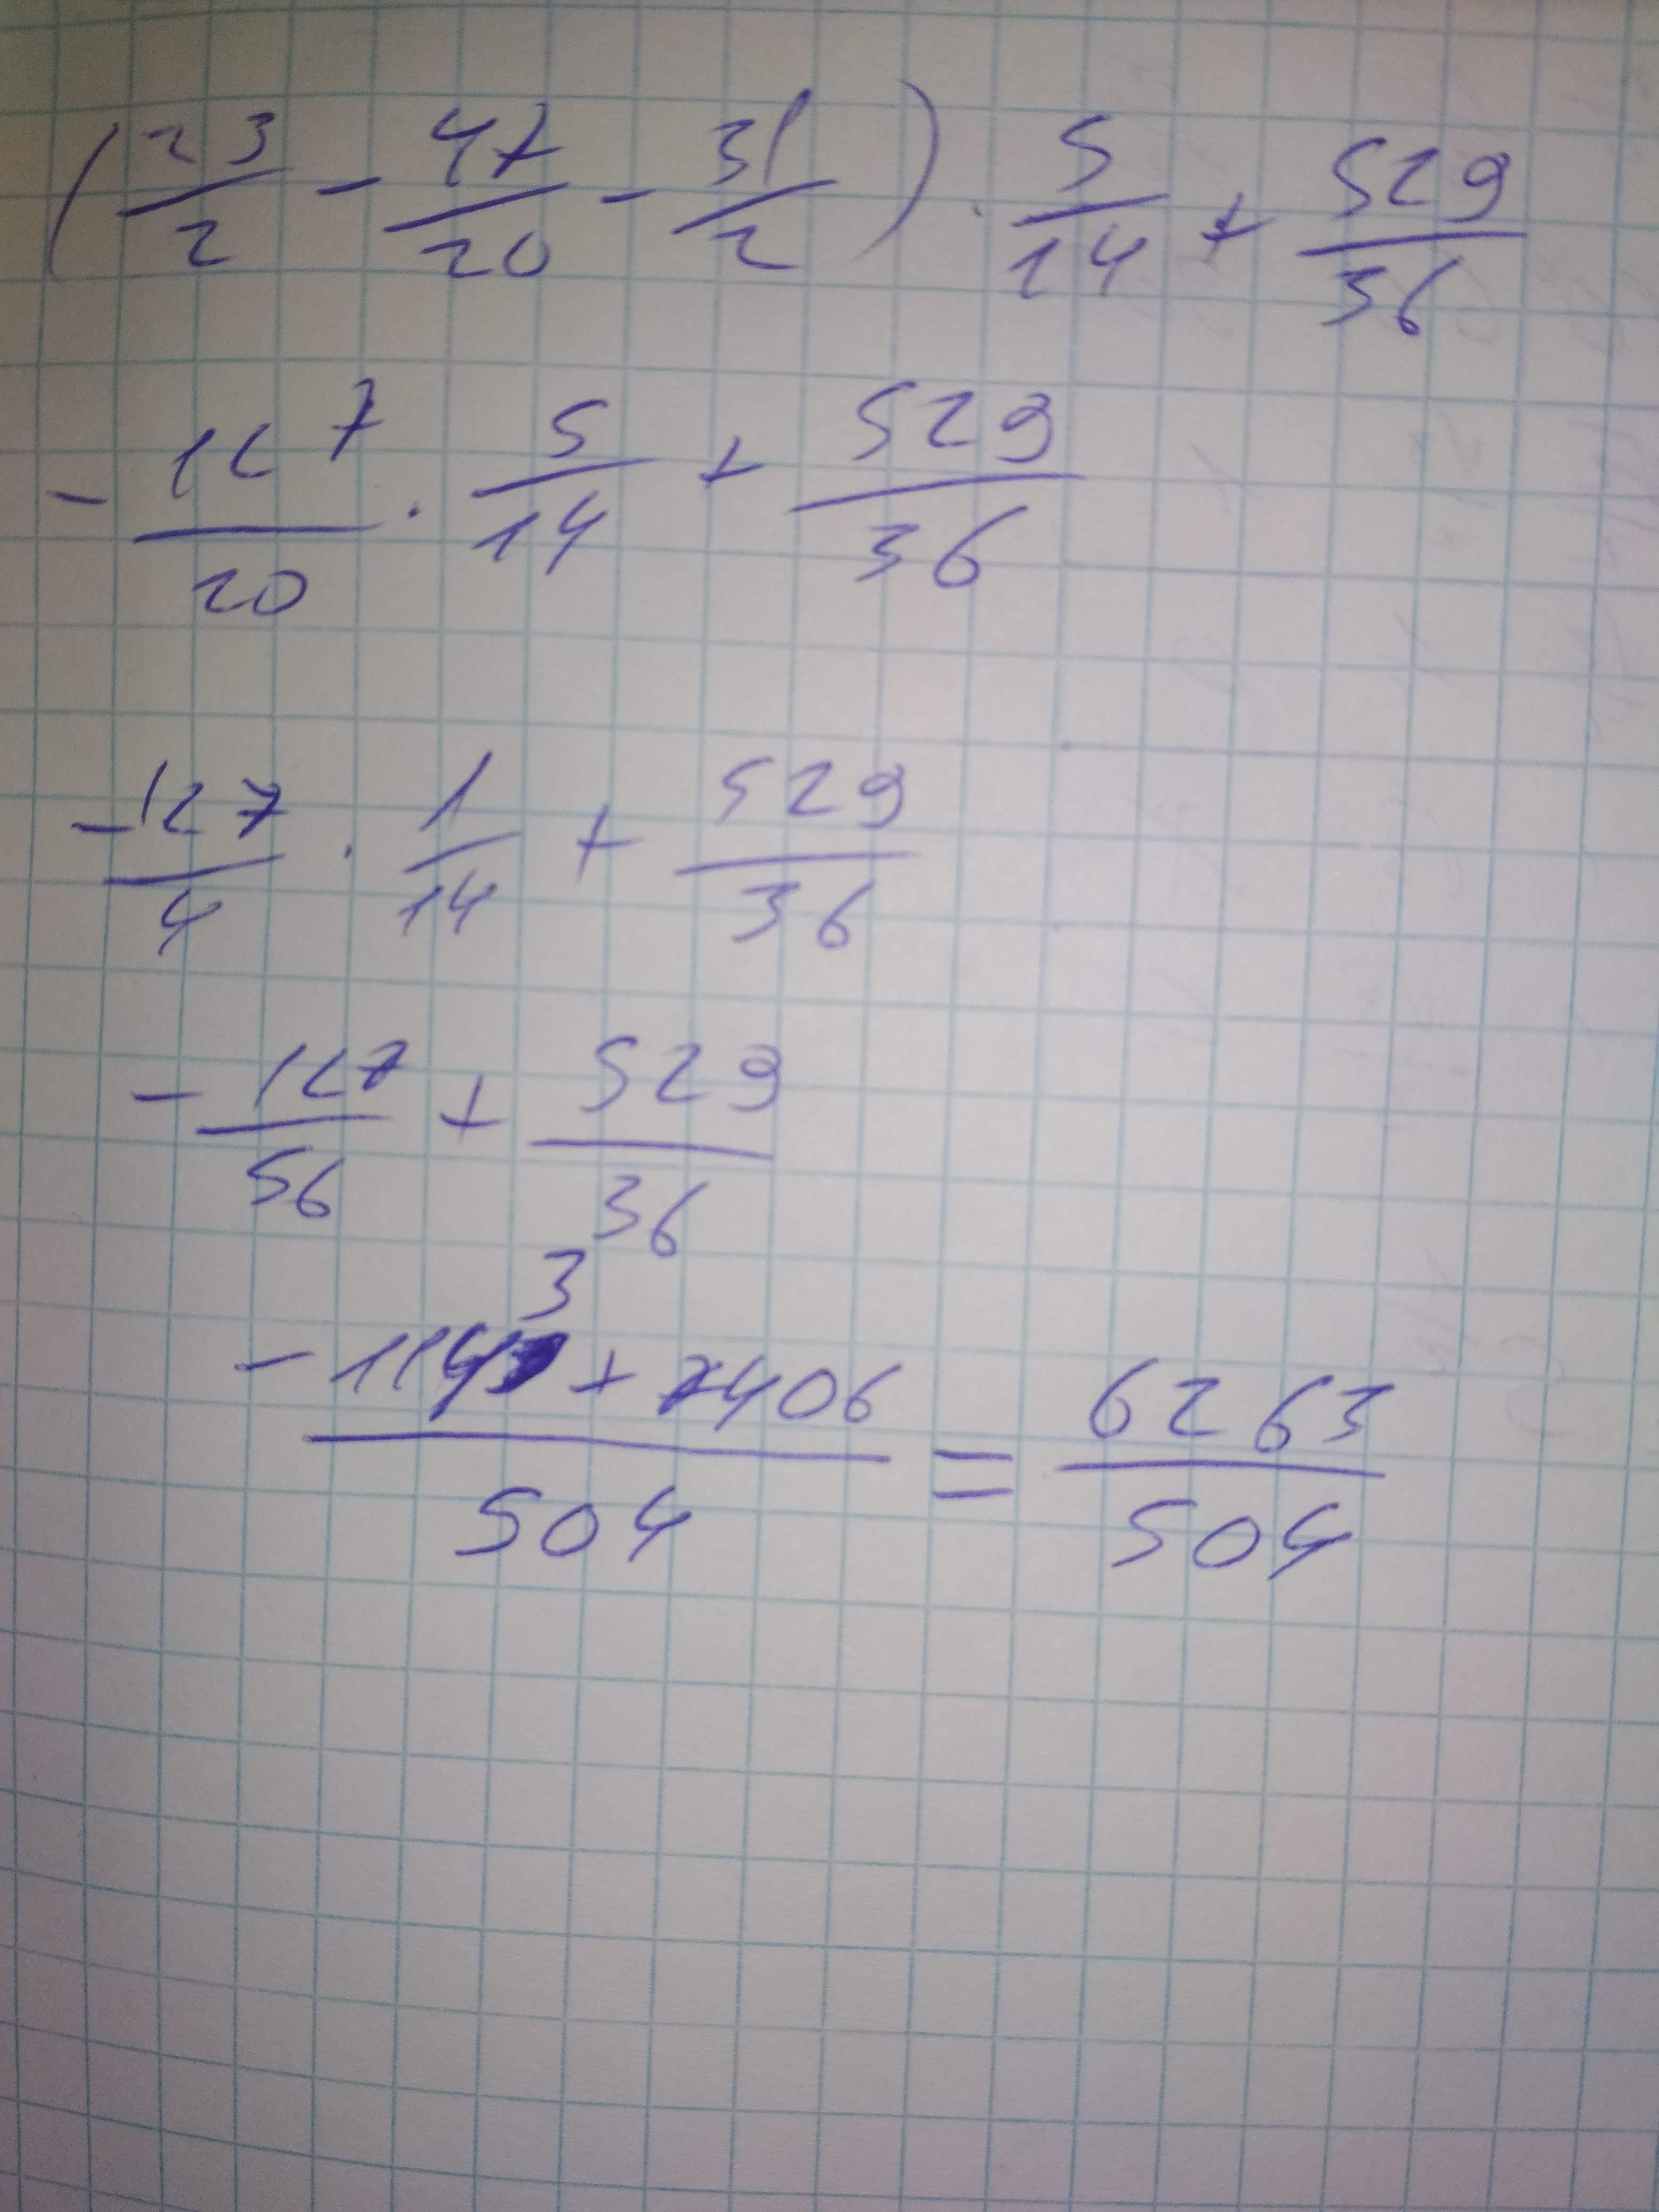 (23/2 - 47/20 - 31/2) · 5/14 + 529/36
- 127/20 · 5/14 + 529/36
- 127/4 · 1/14 + 529/36
- 127/56 + 529/36
(- 1143 + 7406)/504 = 6263/504